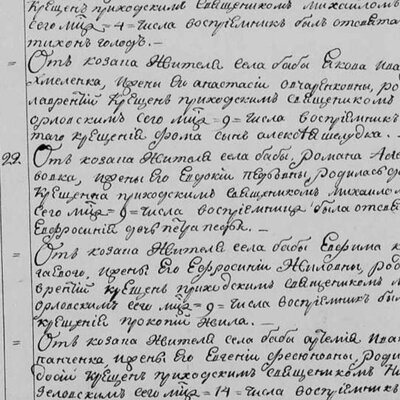 крещенъ приходскимъ священикомъ Михаиломъ
сего мца = 4 = числа восприемникъ былъ отсвята
тихонъ голодъ. —
= Отъ козака жителя села бабы Якова Ива
Хмеленка, и жены ей анастасіи овчаренковны, ро
лаврентій крещенъ приходскимъ священикомъ
орловскимъ сего мца = 9 = числа восприемникъ
таго крещенія фома синъ алексѣя шелудка. —
22. Отъ козака жителя села бабы, Романа Але
вовка, и жены его Евдокіи петровны, родилась до
крещенна приходскимъ священикомъ михаило
сего мца = 9 = числа восприемница была отсвя
Ефросиній
= Отъ козака жителя села бабы Ефрима к
гаевого, и жены его Ефросиніи жиловны, род
врентій крещенъ приходскимъ священикомъ м
орловскимъ сего мца = 9 = числа восприемникъ был
крещенія прокопій жила. —
= Отъ козака жителя села бабы артемія ива
панченка, и жены его Евгеніи федоровны, роди
досій крещенъ приходскимъ священикомъ ми
орловскимъ сего мца = 14 = числа восприемникъ